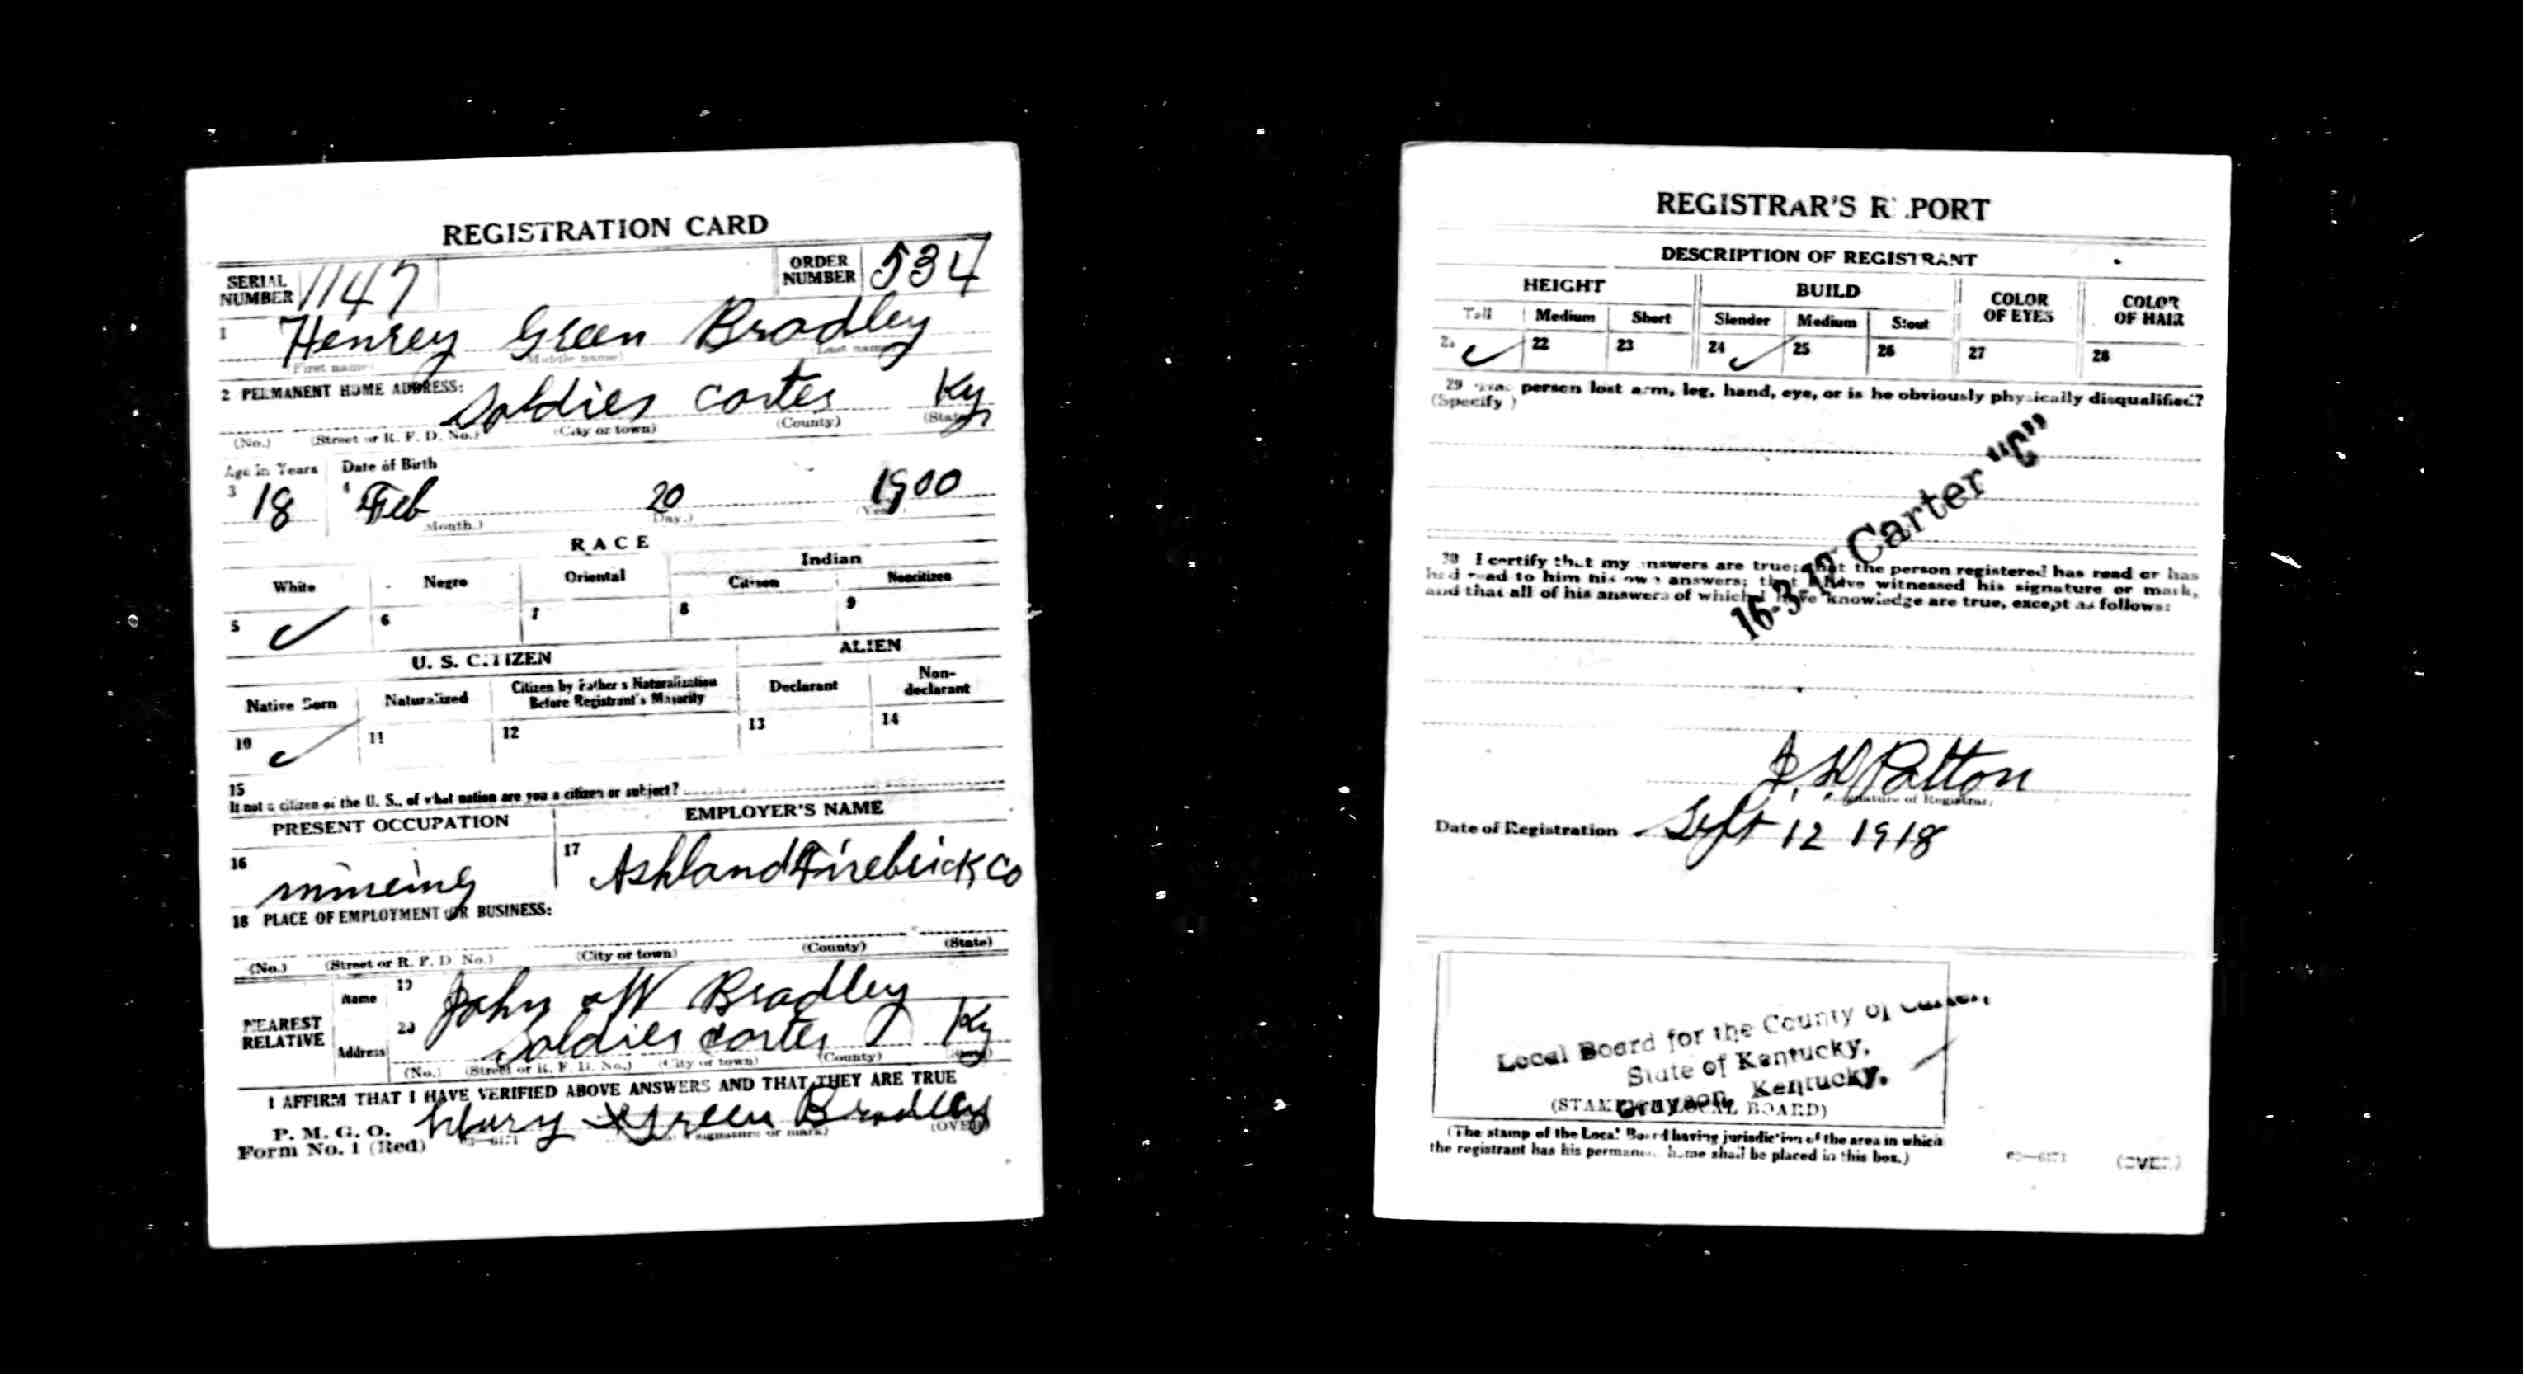 REGISTRATION CARD
SERIAL NUMBER 1147 ORDER NUMBER 534
1 Henrey Green Bradley
First name Middle name) Last name
2 PERMANENT HOME ADDRESS: Soldier Carter Ky
(No.) (Street or R. F. D. No.) (City or town) (County) (State)
Age in Years Date of Birth
3 18 4 Feb 20 1900
Month.) Day.) (Year)
RACE
White Negro Oriental Indian
Citizen Noncitizen
5 ✓ 6 7 8 9
U. S. CITIZEN ALIEN
Native Born Naturalized Citizen by Father's Naturalization Before Registrant's Majority Declarant Non-declarant
10 ✓ 11 12 13 14
15
If not a citizen of the U. S., of what nation are you a citizen or subject?
PRESENT OCCUPATION EMPLOYER'S NAME
16 mineing 17 Ashland Firebrick Co
18 PLACE OF EMPLOYMENT OR BUSINESS:
(No.) (Street or R. F. D. No.) (City or town) (County) (State)
NEAREST RELATIVE
Name 19 John W Bradley
Address 20 Soldier Carter Ky
(No.) (Street or R. F. D. No.) (City or town) (County) (State)
I AFFIRM THAT I HAVE VERIFIED ABOVE ANSWERS AND THAT THEY ARE TRUE
P. M. G. O.
Form No. 1 (Red) Green Bradley
(Signature or mark) (OVER)
REGISTRAR'S REPORT
DESCRIPTION OF REGISTRANT
HEIGHT BUILD COLOR OF EYES COLOR OF HAIR
Tall Medium Short Slender Medium Stout
21 ✓ 22 23 24 ✓ 25 26 27 28
29 Has person lost arm, leg, hand, eye, or is he obviously physically disqualified?
(Specify)
16-3-12 Carter "C"
30 I certify that my answers are true; that the person registered has read or has
had read to him his own answers; that I have witnessed his signature or mark,
and that all of his answers of which I have knowledge are true, except as follows:
Patton
Signature of Registrar
Date of Registration Sept 12 1918
Local Board for the County of Carter,
State of Kentucky,
Grayson, Kentucky.
(STAMP OF LOCAL BOARD)
(The stamp of the Local Board having jurisdiction of the area in which
the registrant has his permanent home shall be placed in this box.)
(OVER)